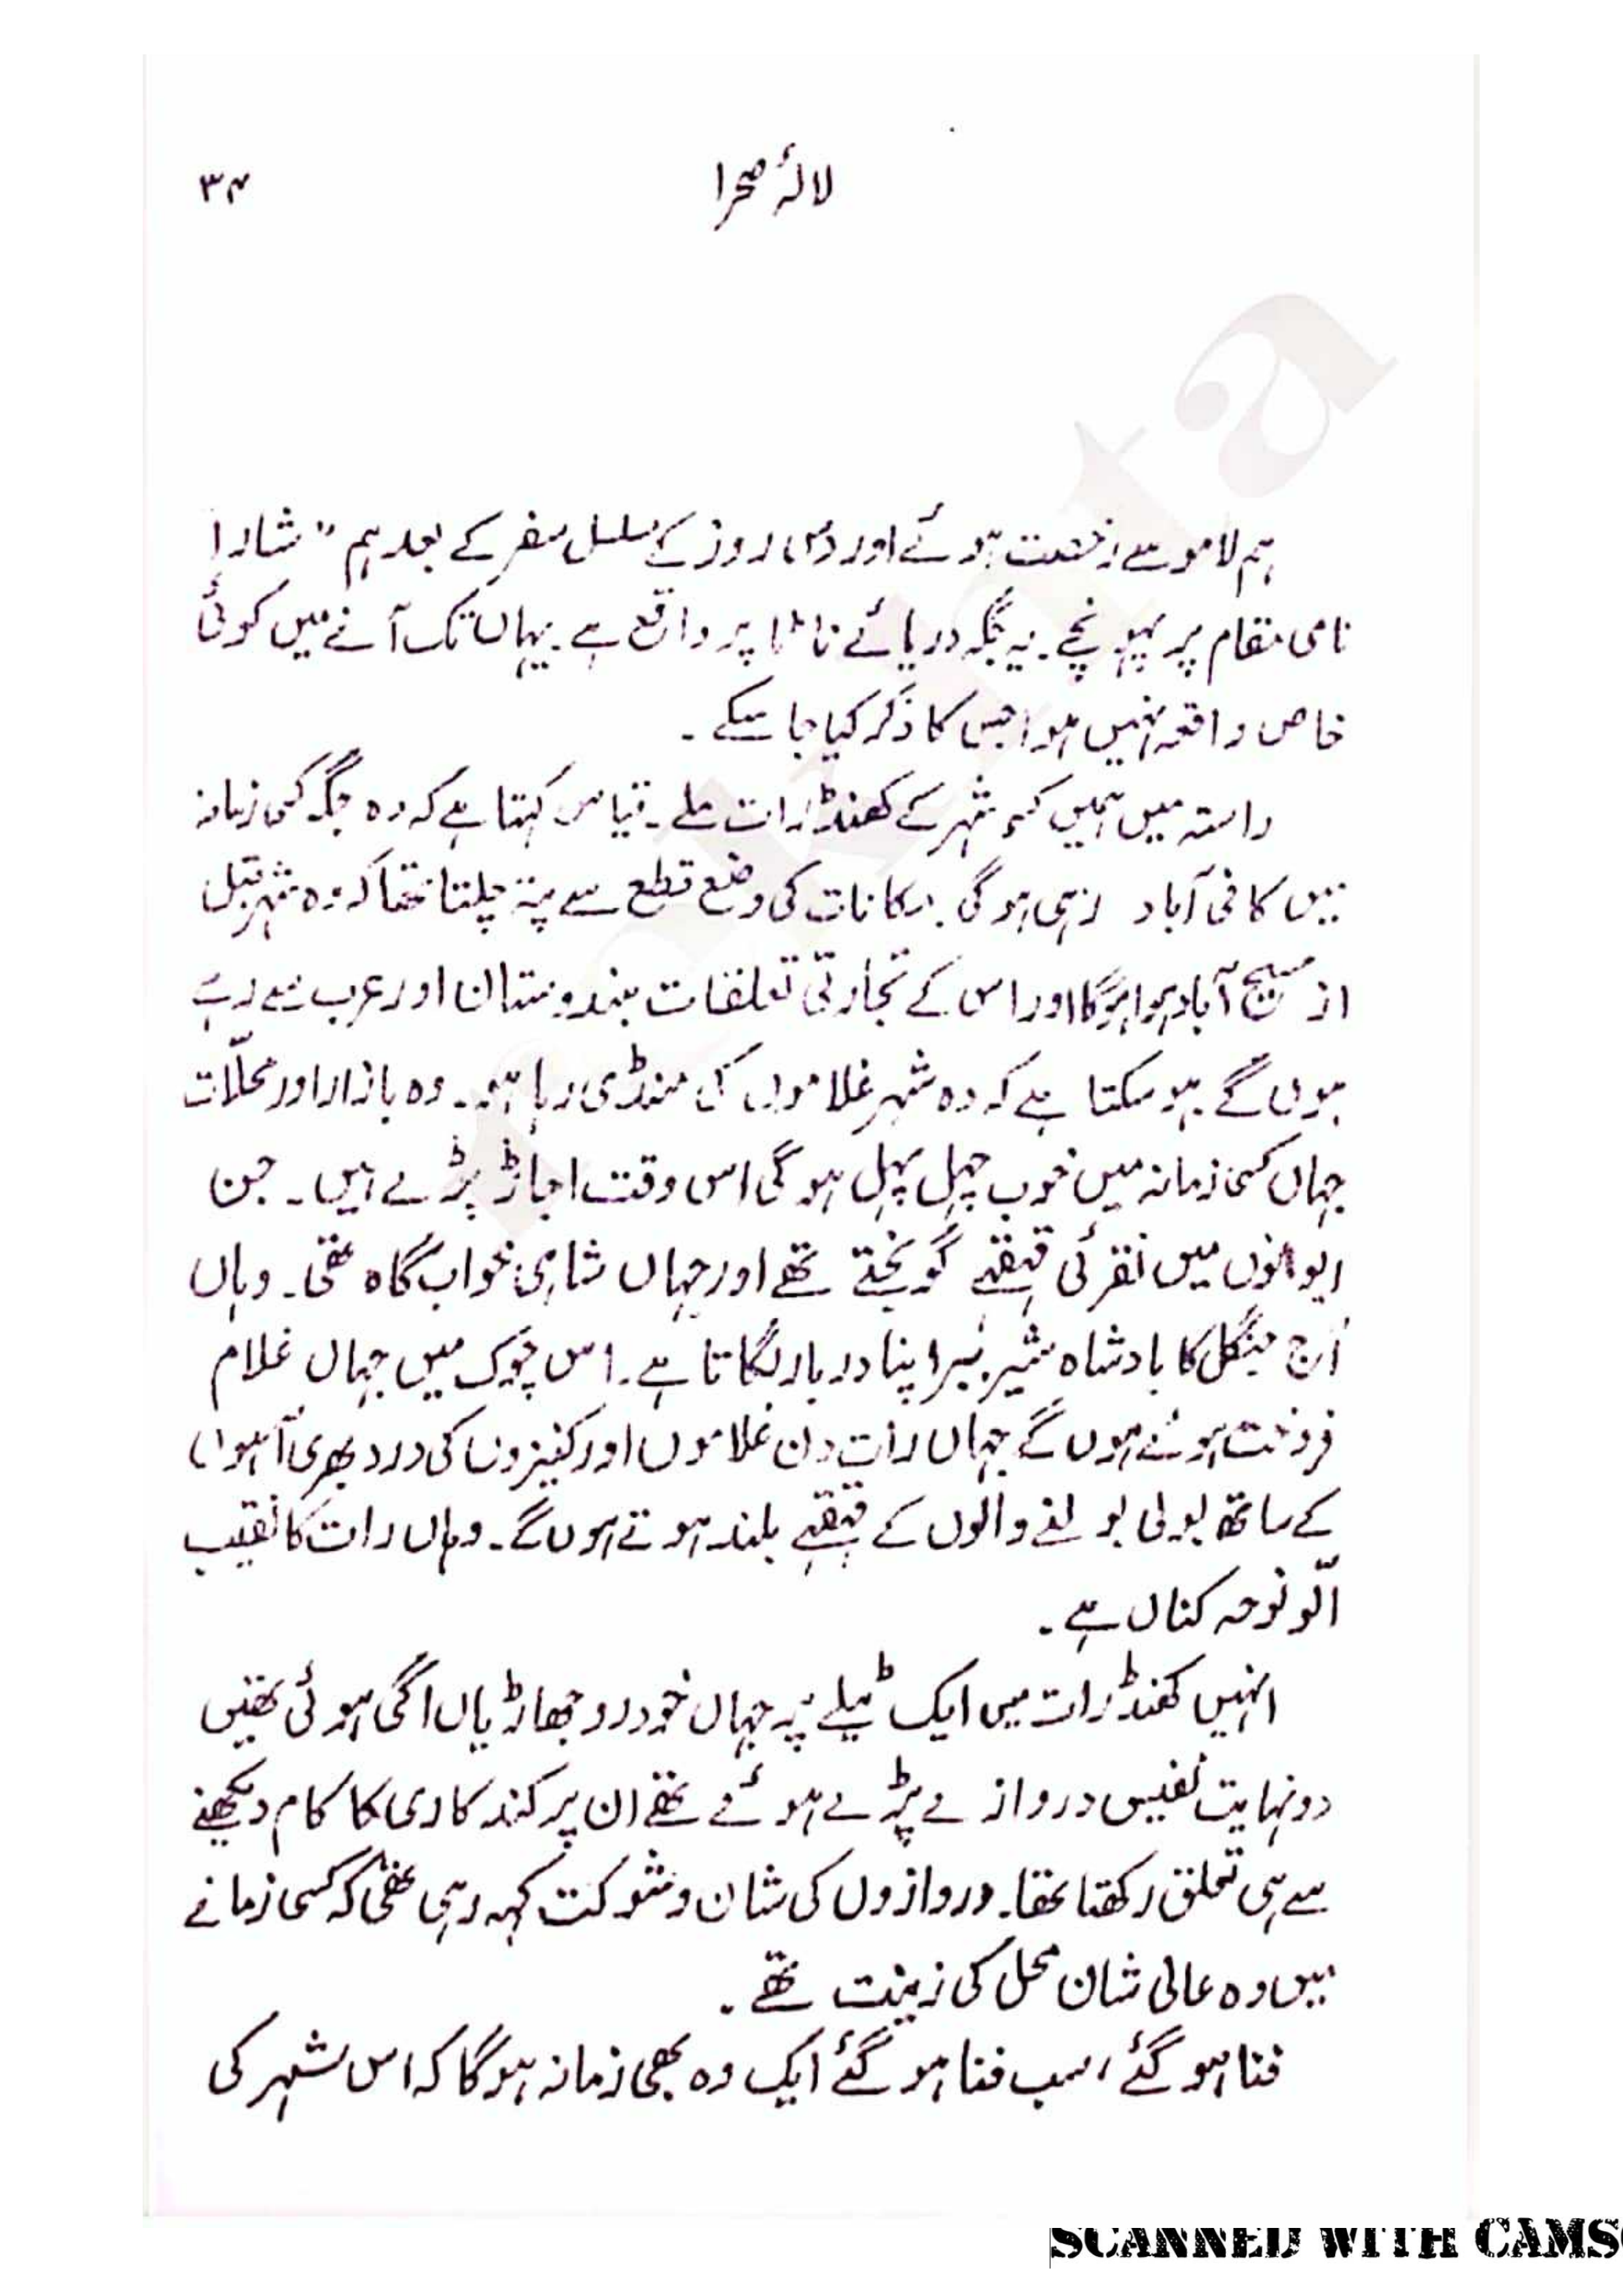 لالۂ صحرا ۳۴
ہم لامو سے رخصت ہوئے اور دس روز کے مسلسل سفر کے بعد ہم "شارا
نامی مقام پر پہونچے۔ یہ جگہ دریائے تانا پر واقع ہے۔ یہاں تک آنے میں کوئی
خاص واقعہ نہیں ہوا جس کا ذکر کیا جا سکے۔
راستہ میں ہمیں کسی شہر کے کھنڈرات ملے۔ قیاس کہتا ہے کہ وہ جگہ کسی زمانہ
میں کافی آباد رہی ہوگی۔ مکانات کی وضع قطع سے پتہ چلتا تھا کہ وہ شہر قبل
از مسیح آباد ہوا ہوگا اور اس کے تجارتی تعلقات ہندوستان اور عرب سے رہے
ہوں گے ہو سکتا ہے کہ وہ شہر غلاموں کی منڈی رہا ہو۔ وہ بازار اور محلّات
جہاں کسی زمانہ میں خوب چہل پہل ہوگی اس وقت اجاڑ پڑے ہیں۔ جن
ایوانوں میں نقرئی قہقہے گونجتے تھے اور جہاں شاہی خواب گاہ تھی۔ وہاں
آج جنگل کا بادشاہ شیر ببر اپنا دربار لگاتا ہے۔ اس چوک میں جہاں غلام
فروخت ہوئے ہوں گے جہاں رات دن غلاموں اور کنیزوں کی درد بھری آہوں
کے ساتھ بولی بولنے والوں کے قہقہے بلند ہوتے ہوں گے۔ وہاں رات کا نقیب
الّو نوحہ کناں ہے۔
انہیں کھنڈرات میں ایک ٹیلے پہ جہاں خودرو جھاڑیاں اگی ہوئی تھیں
دو نہایت نفیس دروازے پڑے ہوئے تھے ان پر کندہ کاری کا کام دیکھنے
سے ہی تعلق رکھتا تھا۔ دروازوں کی شان و شوکت کہہ رہی تھی کہ کسی زمانے
میں وہ عالی شان محل کی زینت تھے۔
فنا ہو گئے، سب فنا ہو گئے ایک وہ بھی زمانہ ہوگا کہ اس شہر کی
SCANNED WITH CAMS